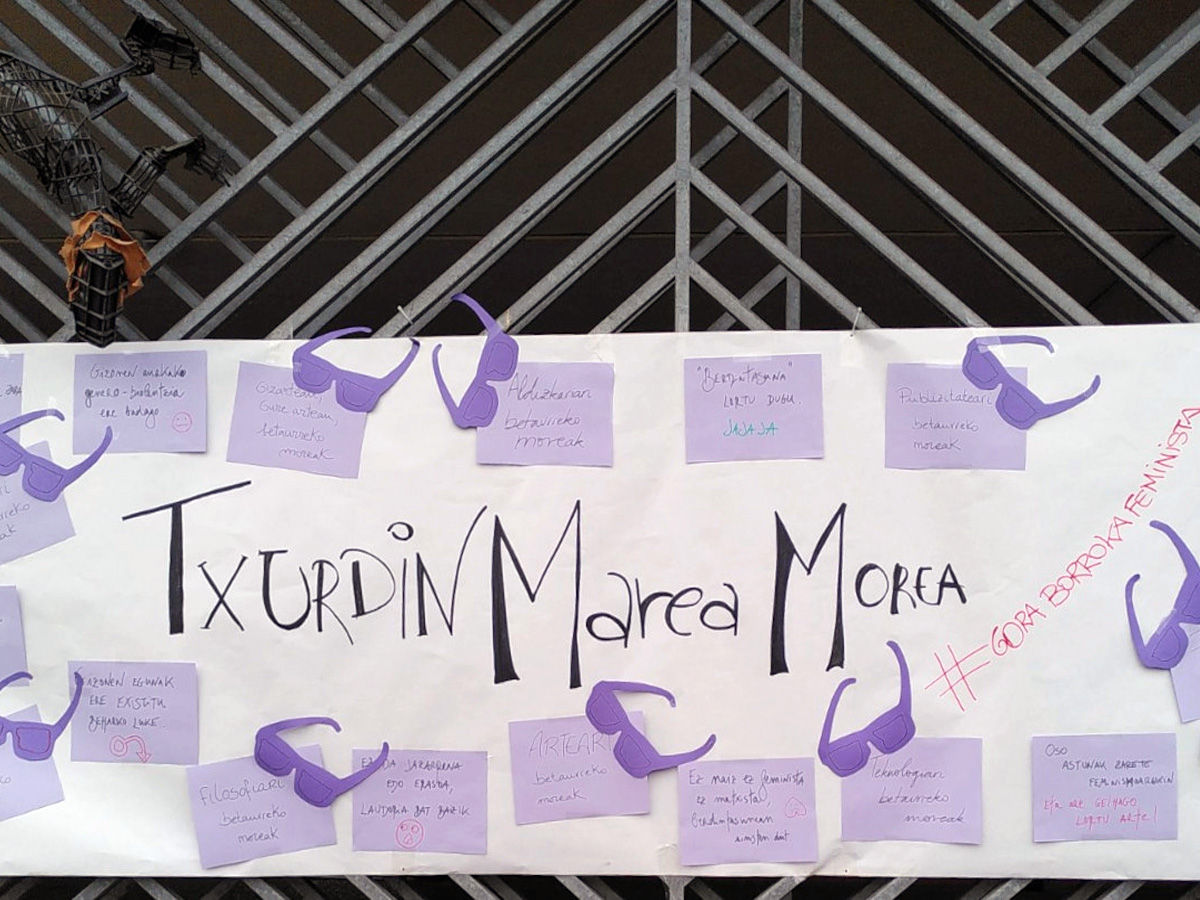 Gizonen aurkako
genero-biolentzia
ere badago
Gizartean,
Gure artean,
betaurreko
moreak
Aldizkariari
betaurreko
moreak
"BERDINTASUNA"
LORTU DUGU.
JAJAJA
Publizitateari
betaurreko
moreak
TXURDIN MAREA MOREA
#GORA BORROKA FEMINISTA
GIZONEN EGUNAK
ERE EXISTITU
BEHARKO LUKE...
Filosofiari
betaurreko
moreak
EZ DA JAZARPENA
EDO ERASOA,
LAUTADA BAT BAIZIK
ARTEARI
betaurreko
moreak
Ez naiz ez feminista
ez matxista,
berdintasunean
sinisten dut.
Teknologiari
betaurreko
moreak
Oso
ASTUNAK ZARETE
FEMINISMOAREKIN
Eta are GEHIAGO
LORTU ARTE!